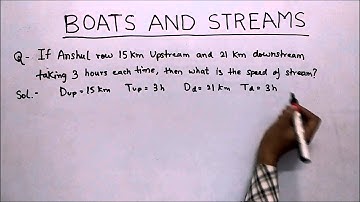 BOATS AND STREAMS
Q- If Anshul row 15 km Upstream and 21 km downstream
taking 3 hours each time, then what is the speed of stream?
Sol.- Dup = 15 km Tup = 3 h Dd = 21 km Td = 3 h